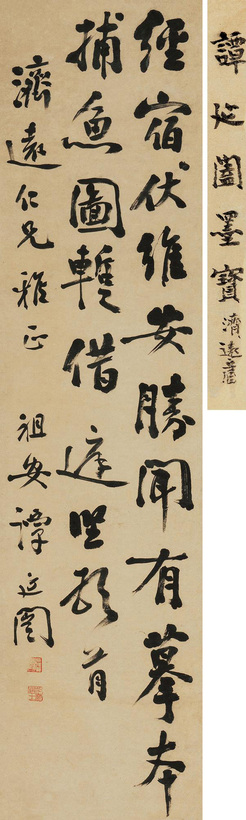 譚延闓墨寶 濟遠
經宿伏維安勝聞有摹本
捕魚圖蹔借庭堅頓首
濟遠仁兄雅正 祖安譚延闓